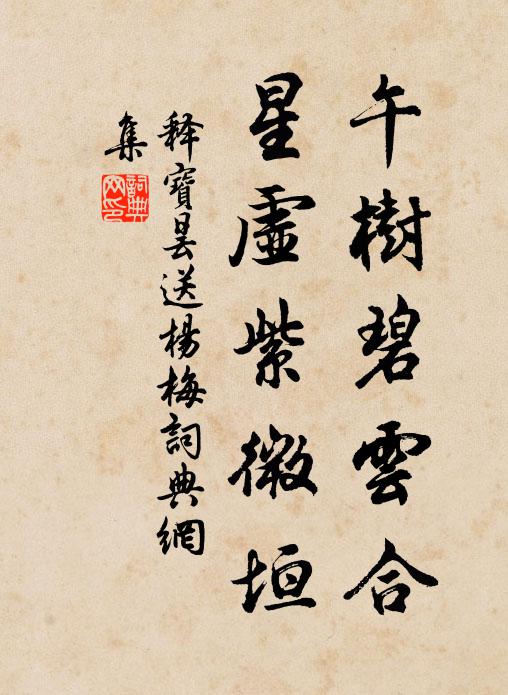 午樹碧雲合
星虛紫微垣
釋寶曇送楊梅詞典網
集
詞典
网印